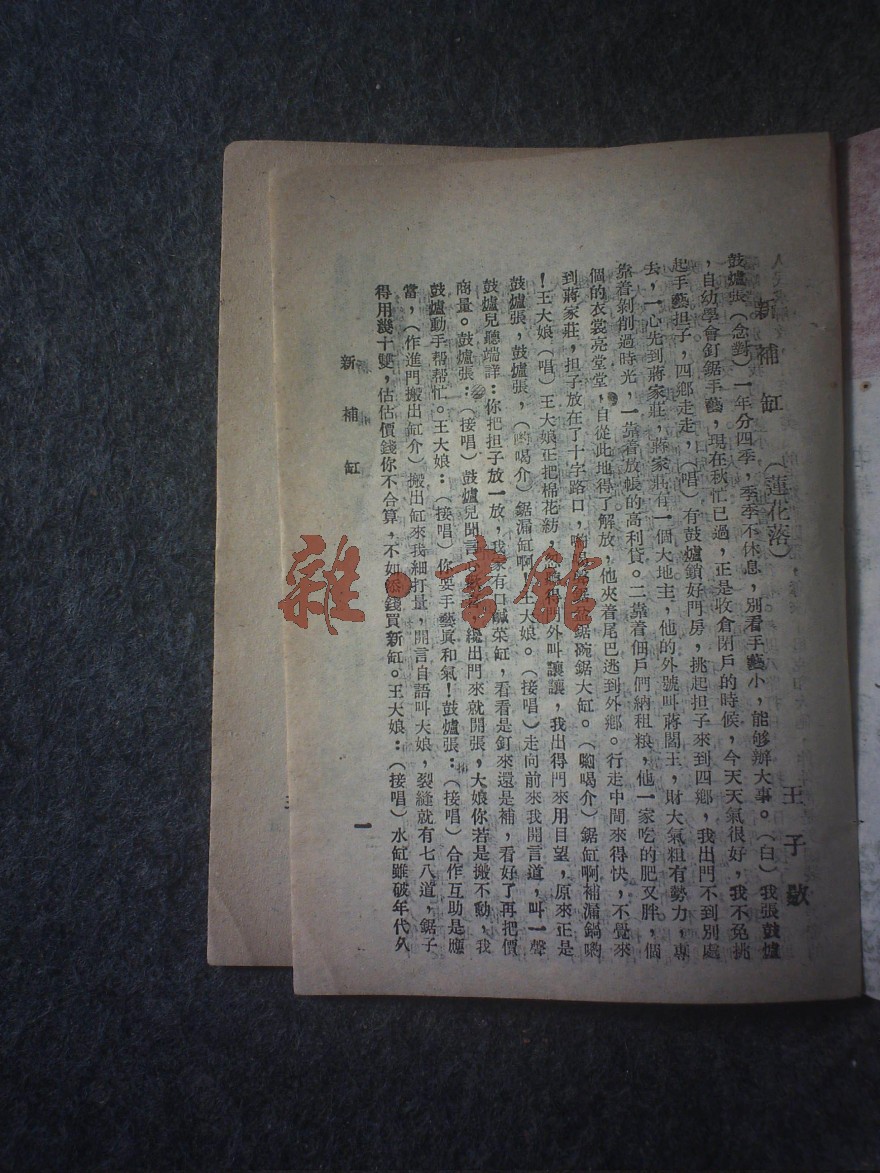 新補缸 (蓮花落) 王子
鼓爐張(念對)一年分四季,季季不休息,別看手藝小,能够辦大事。(白)我張鼓爐
,自幼學會釘鋸手藝,現在秋忙已過,正是收倉閉戶的時候,今天天氣很好,我不免挑
起手藝担子,四鄉走走,(唱)有鼓爐鎖好門房,挑起担子來到四鄉,我出門不到別處
去,一心先到蔣家莊,蔣家莊有一個大地主,他的外號叫蔣閻王,財大氣粗有勢力,專
靠着剝削過時光,一靠着放帳的高利貸。二靠着佃戶們納租粮,他一家吃的肥又胖,個
個的衣裳亮堂堂,自從此地得了解放,他夾着尾巴逃到外鄉。行走中間來得快,不覺來
到蔣家莊,担子放在了十字路口,鋸碗鋸大缸。(喲喝介)鋸缸啊補漏鍋喲
!王大娘(唱)王大娘正把棉花紡,門外叫讓讓,我出得門來用目望,原來正是
鼓爐張,鼓爐張,(喲喝介)鋸漏缸啊,王大娘。(接唱)走向前來我開言道,叫一聲
鼓爐兒聽端詳:你把担子放一放,我家有口鹹菜缸,看看是釘來還是補,看好了再把價
商量。鼓爐張:(接唱)鼓爐兒聞言,纔出門來就開張,大娘你若是搬不動,我
鼓爐動手帮帮忙。王大娘:(接唱)你耍手藝真和氣!鼓爐張:(接唱)合作互助是應
當,(作進門搬出缸介)搬出缸來我細打量,開言自語叫大娘,裂縫就有七八道,鋸子
得用幾十雙,估估價錢你不合算,不如添錢買新缸。王大娘:(接唱)水缸雖破年代久
新補缸
一
雜·書館